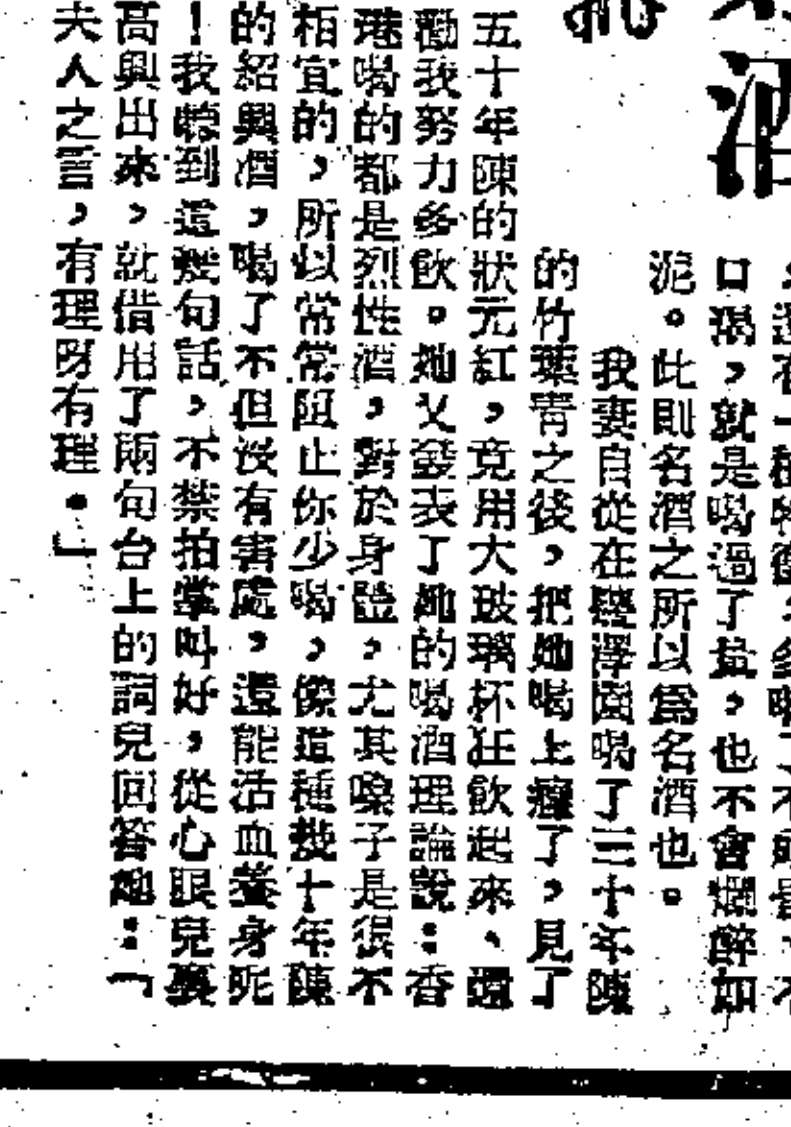 口渴，就是喝過了量，也不會爛醉如
泥。此則名酒之所以爲名酒也。
我妻自從在璧澤園喝了三十年陳
的竹葉靑之後，把她喝上癮了，見了
五十年陳的狀元紅，竟用大玻璃杯狂飲起來、還
勸我努力多飲。她又發表了她的喝酒理論說：香
港喝的都是烈性酒，對於身體，尤其嗓子是很不
相宜的，所以常常阻止你少喝，像這種幾十年陳
的紹興酒，喝了不但沒有害處，還能活血養身呢
！我聽到這幾句話，不禁拍掌叫好，從心眼兒裏
高興出來，就借用了兩句台上的詞兒回答她：「
夫人之言，有理呀有理。」